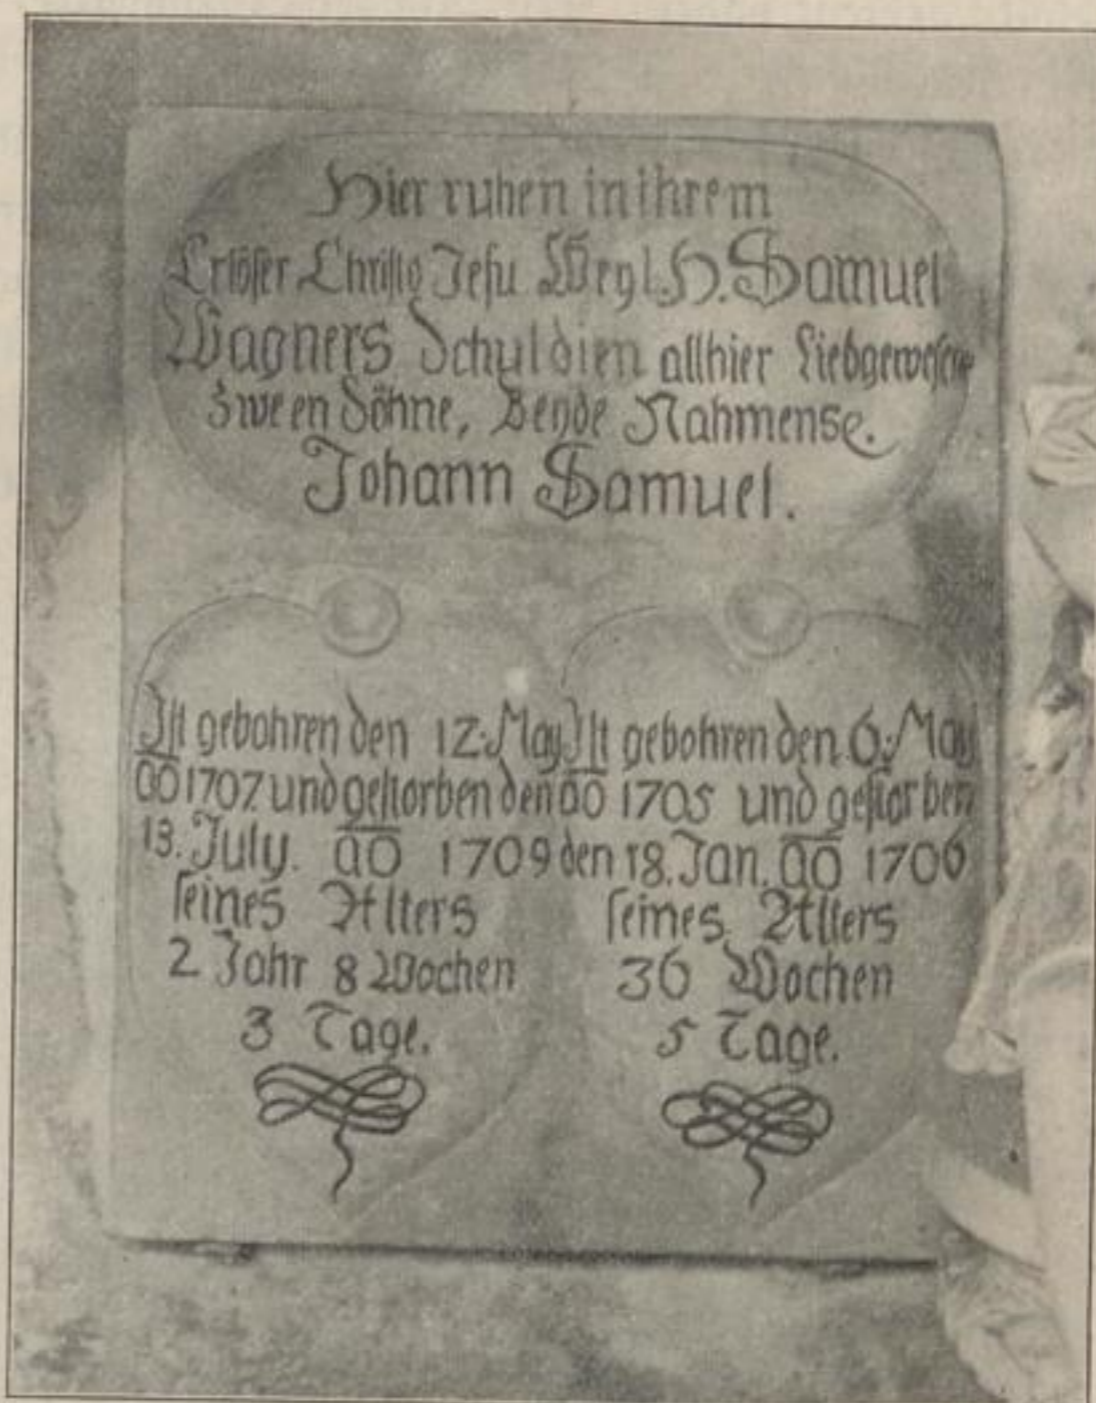 Hier ruhen in ihrem
Erlöser Christo Jesu Weyl. H. Samuel
Wagners Schuldien allhier Liebgewesene
Zween Söhne, Beyde Nahmense.
Johann Samuel.
Ist gebohren den 12. May
ao 1707 und gestorben den
13. July. ao 1709
seines Alters
2 Jahr 8 Wochen
3 Tage.
Ist gebohren den 6. May
ao 1705 und gestorben
den 18. Jan. ao 1706
seines Alters
36 Wochen
5 Tage.